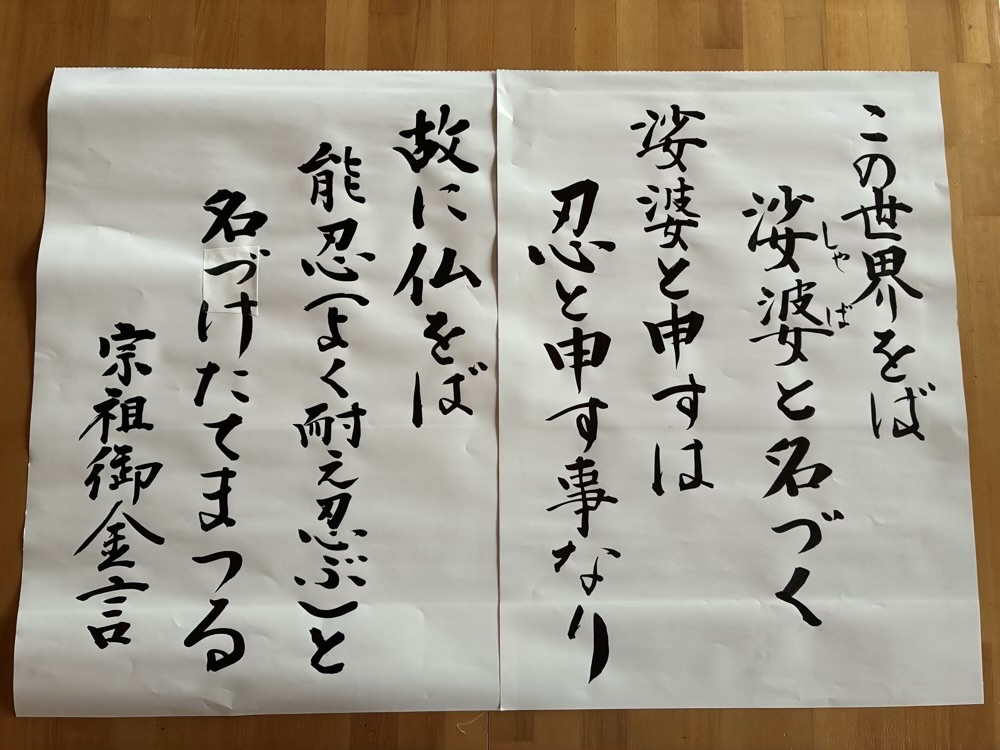 この世界をば
娑婆と名づく
しゃば
娑婆と申すは
忍と申す事なり
故に仏をば
能忍(よく耐え忍ぶ)と
名づけたてまつる
宗祖御金言